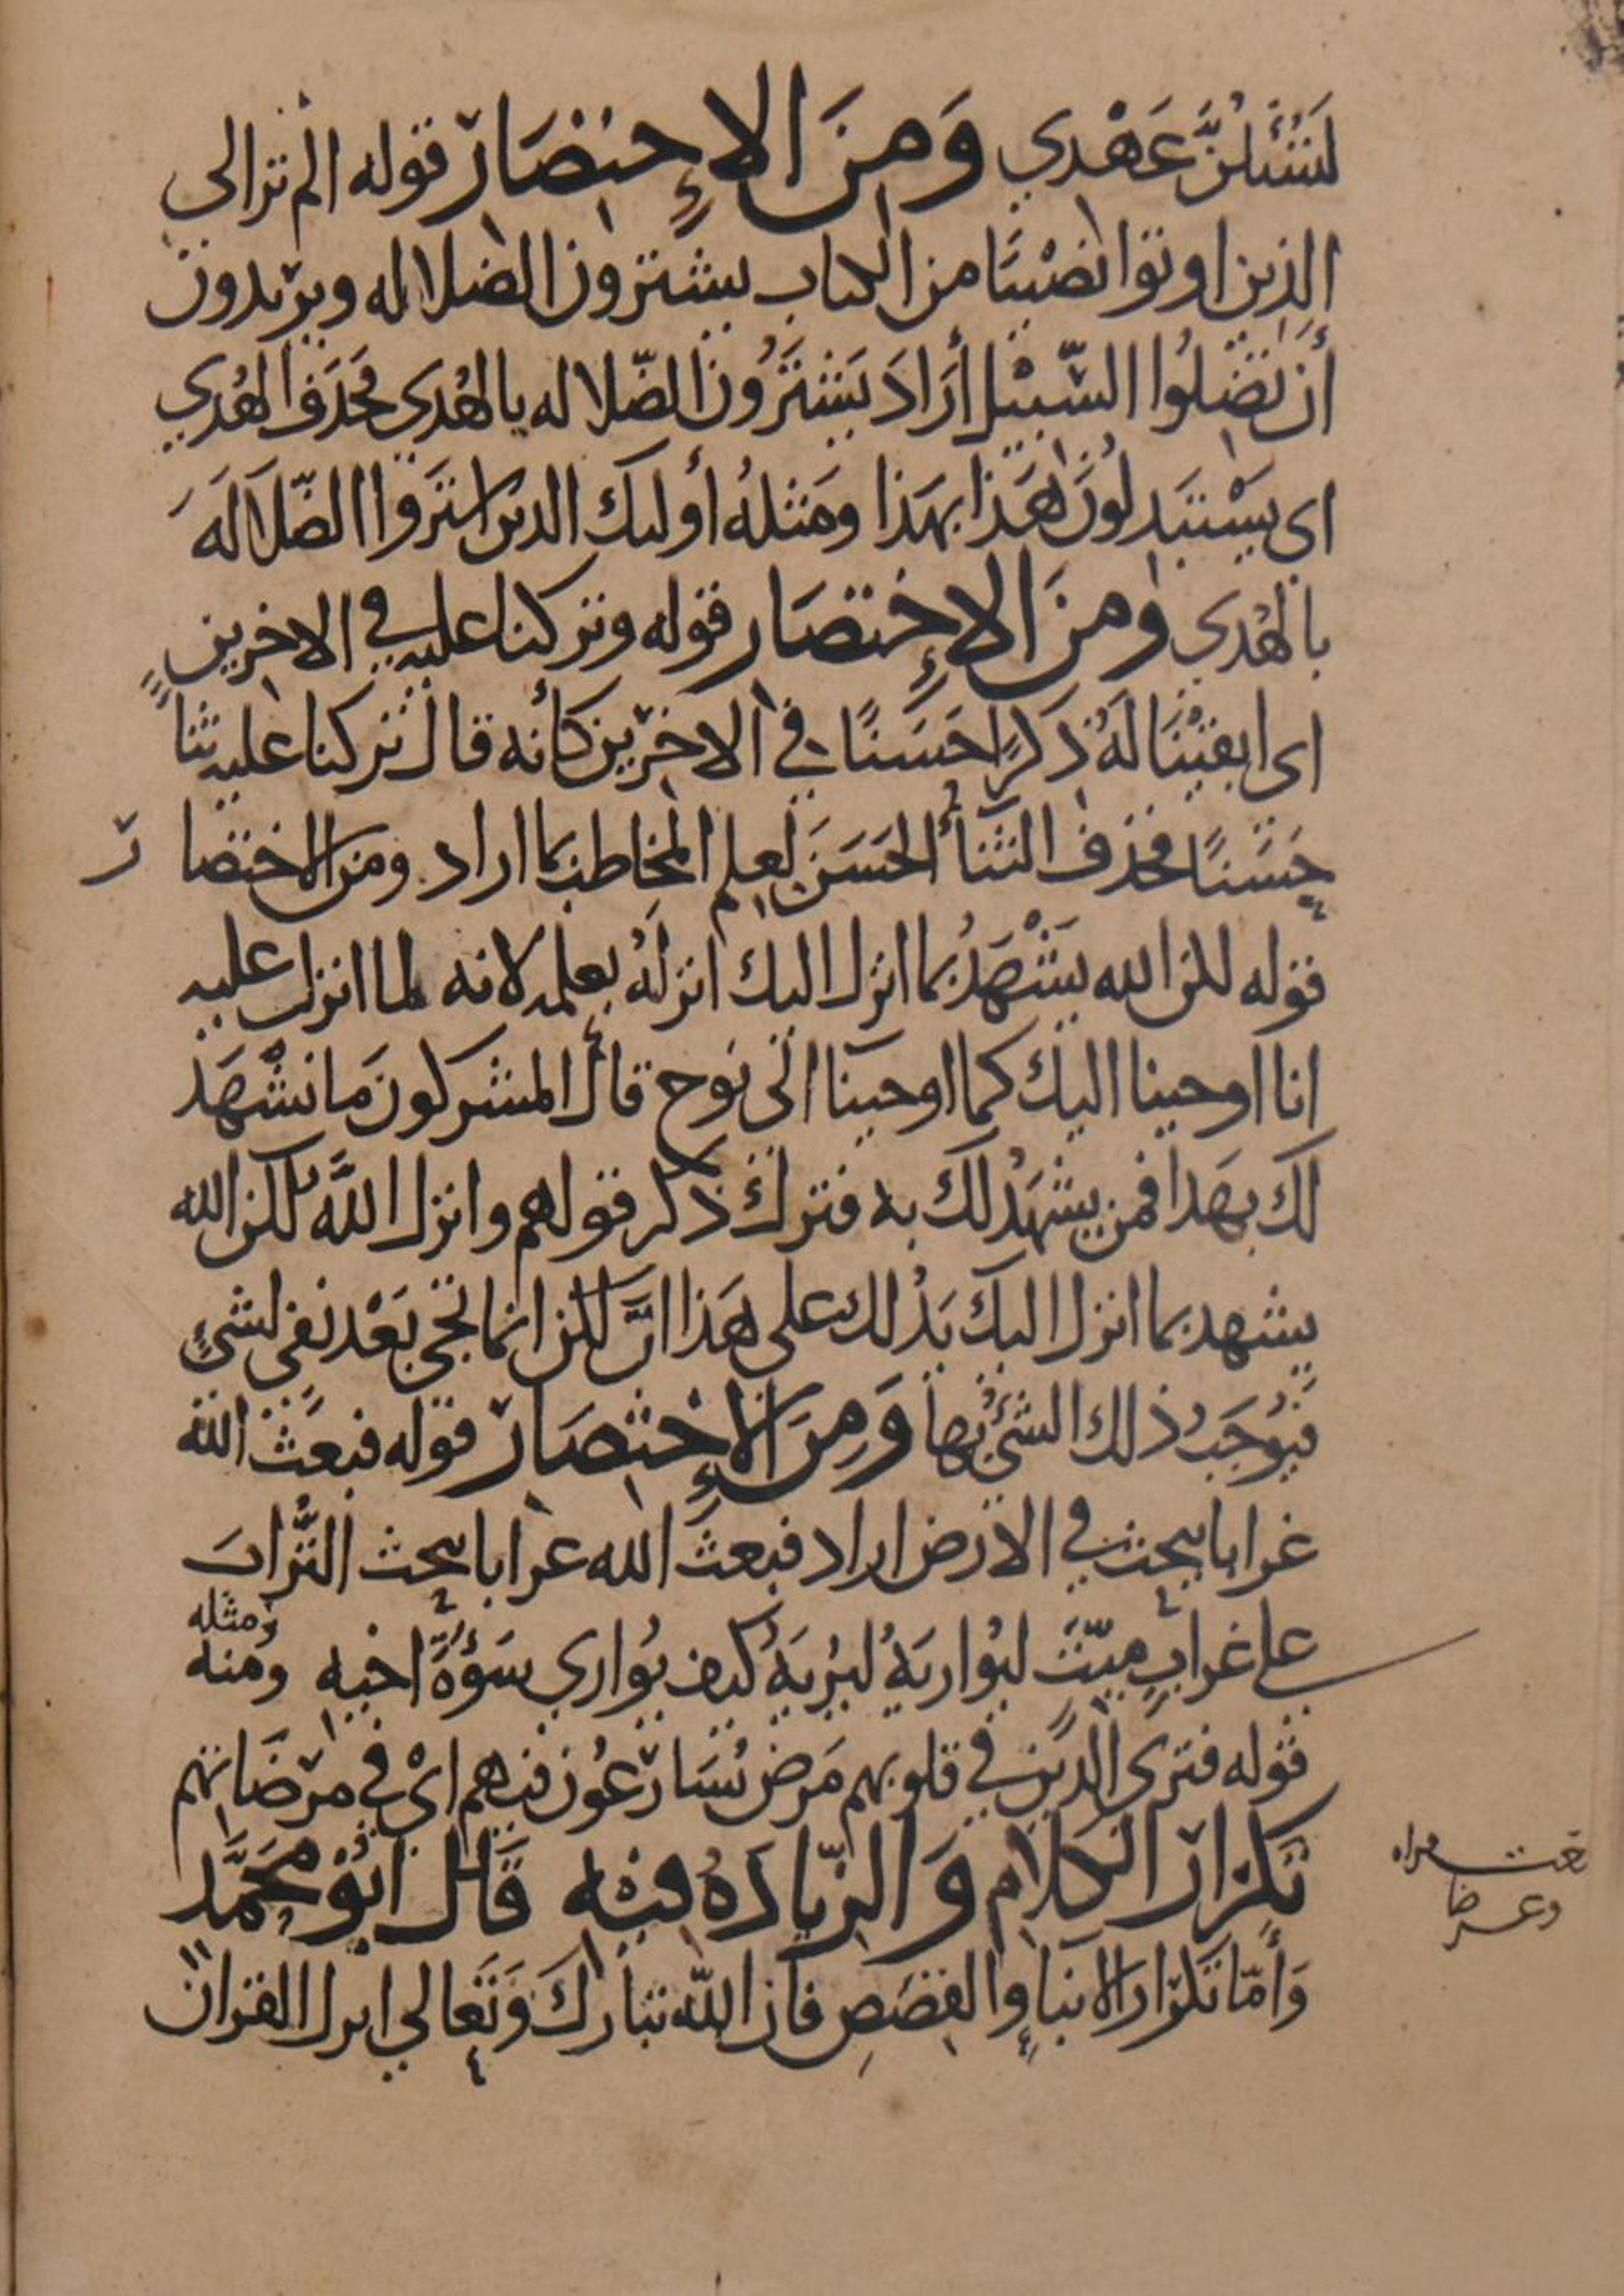 لتسئلن عَهْدي وَمِنَ الإِختصَار قوله الم تر الى
الذين اوتوا نصيبًا من الكتاب يشترون الضلاله ويريدون
أن تضلُوا السّبيل أرَادَ يَشترُون الضّلاله بالهُدي فحَذفَ الهُدي
اى يسْتبَدلُونَ هَذا بهَذا ومَثلهُ أوليك الذين اشترَوا الضّلالَهَ
بالهُدي ومنَ الإِختصَار قوله وتركنا عليه في الاخرين
اى ابقيْنَا لَهُ ذكرًا حَسَنًا في الاخرين كأنه قال تركنا عليه ثناً
حَسَنًا فحذف الثناَ الحَسَنَ لعِلم المخاطب بما اراد ومن الاختصار
قوله لكن الله يشْهَدُ بما انزل اليك انزلهُ بعلمه لانه لما انزل عليه
انا اوحينا اليك كما اوحينا الى نوح قال المشركون مَا نشْهَد
لَكَ بهَذا فمن يشهَدْ لكَ به فترك ذكر قولهم وانزل اللَّهُ لكن الله
يشهد بما انزل اليك يَدُلك على هَذا انَّ لكن انما تجي بَعْد نفي لشيءٍ
فيُوجَبُ ذلك الشيُ بها وَمِنَ الإِختصَار قوله فبَعَثَ الله
غرابا يبحث في الارض اراد فبعثَ الله غرابا يبحث التُّرابَ
على غرابٍ ميّت ليُواريَهُ ليُريَهُ كيف يُواري سَوْءَةَ اخيه ومنه
ومثله
قوله فترى الذين في قلوبهم مَرض يُسَارعُون فيهم ايْ في مرضَاتهم
تكرار الكلام وَالزّيادَهُ فيْه قَالَ ابُو محَمَّد
وَأمّا تكرَار الانباءِ والقصَصِ فان اللّه تبارك وَتعَالي انزل القران